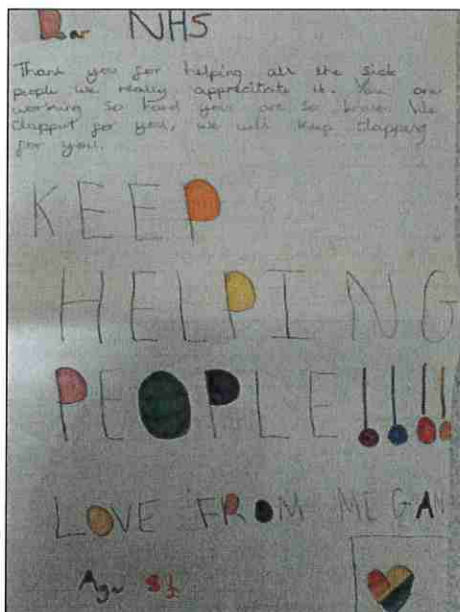 Dear NHS
Thank you for helping all the sick
people we really apprecitate it. You are
working so hard you are so brave We
clapput for you, we will keep clapping
for you.
KEEP
HELPING
PEOPLE!!!!
LOVE FROM MEGAN
Age 8½